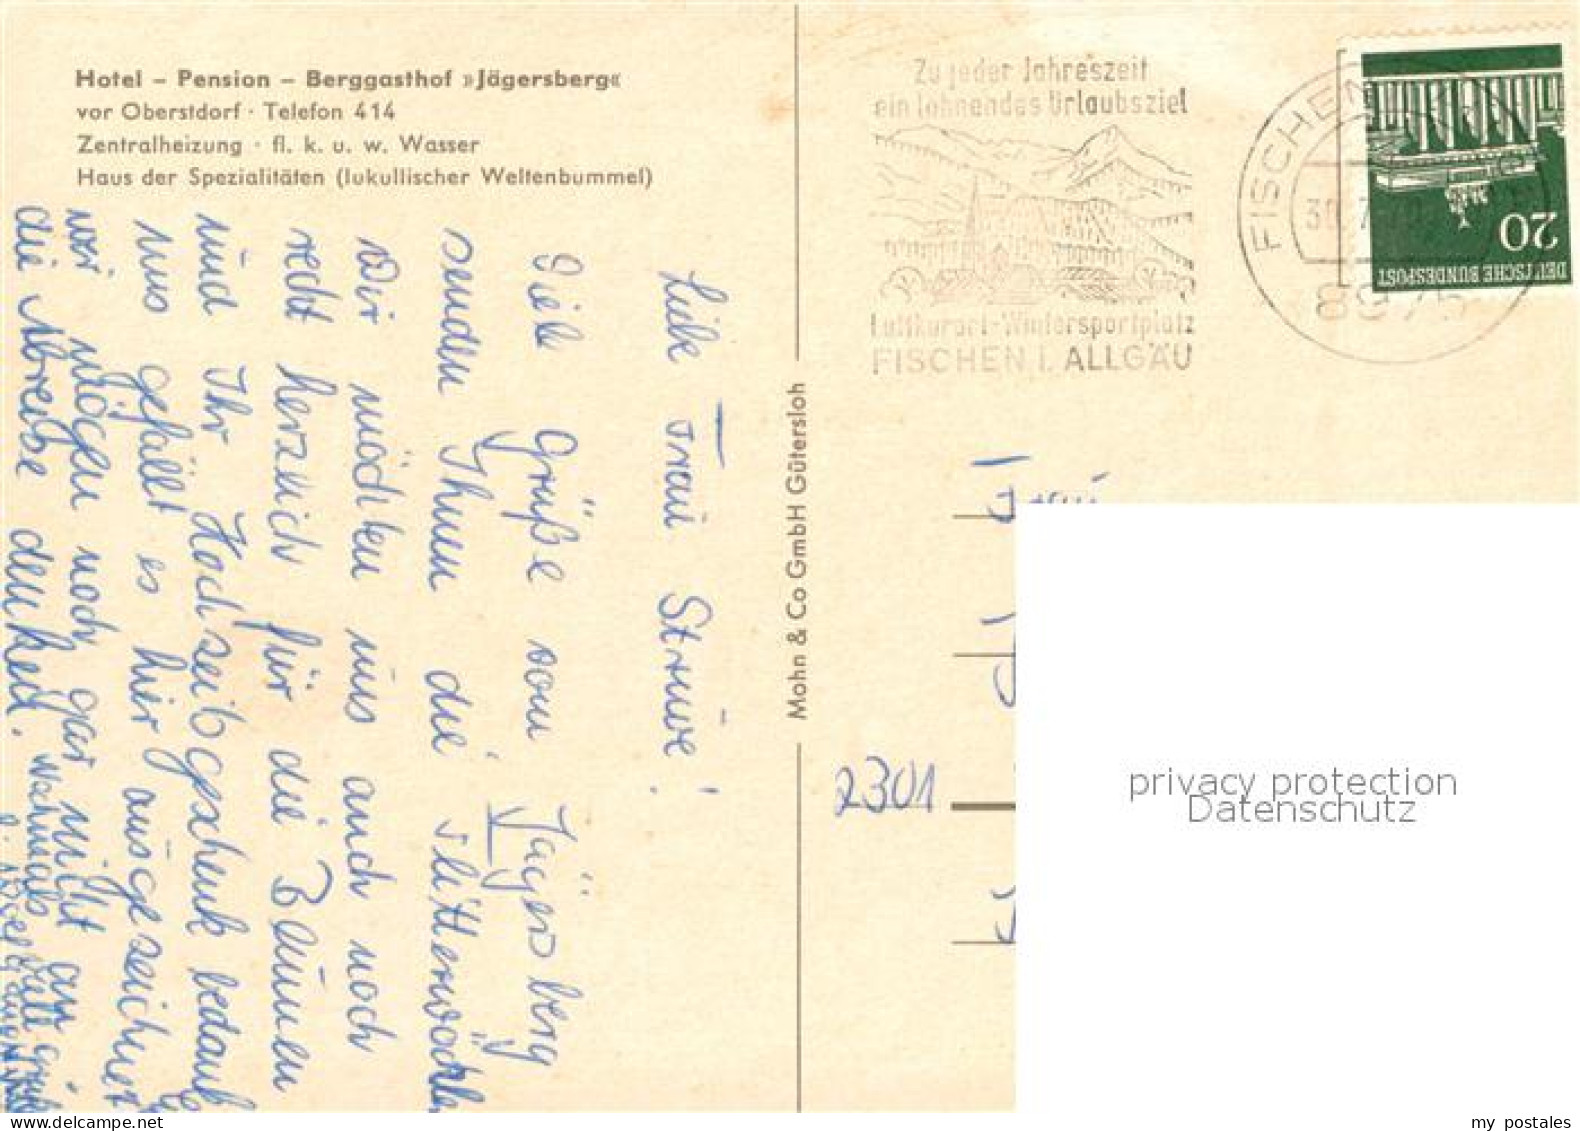 Hotel – Pension – Berggasthof »Jägersberg«
vor Oberstdorf · Telefon 414
Zentralheizung · fl. k. u. w. Wasser
Haus der Spezialitäten (lukullischer Weltenbummel)
Liebe Frau Strüwe!
Viele Grüße vom Jägersberg
senden Ihnen die Flitterwöchler
Wir möchten uns auch noch
recht herzlich für die Blumen
und Ihr Hochzeitsgeschenk bedanken
uns gefällt es hier ausgezeichnet
wir mögen noch gar nicht an
die Abreise denken.
Nochmals viele Grüße
Mohn & Co GmbH Gütersloh
Zu jeder Jahreszeit
ein lohnendes Urlaubsziel
Luftkurort-Wintersportplatz
FISCHEN I. ALLGÄU
FISCHEN
30.7.
8975
20
DEUTSCHE BUNDESPOST
2301
privacy protection
Datenschutz
my postales